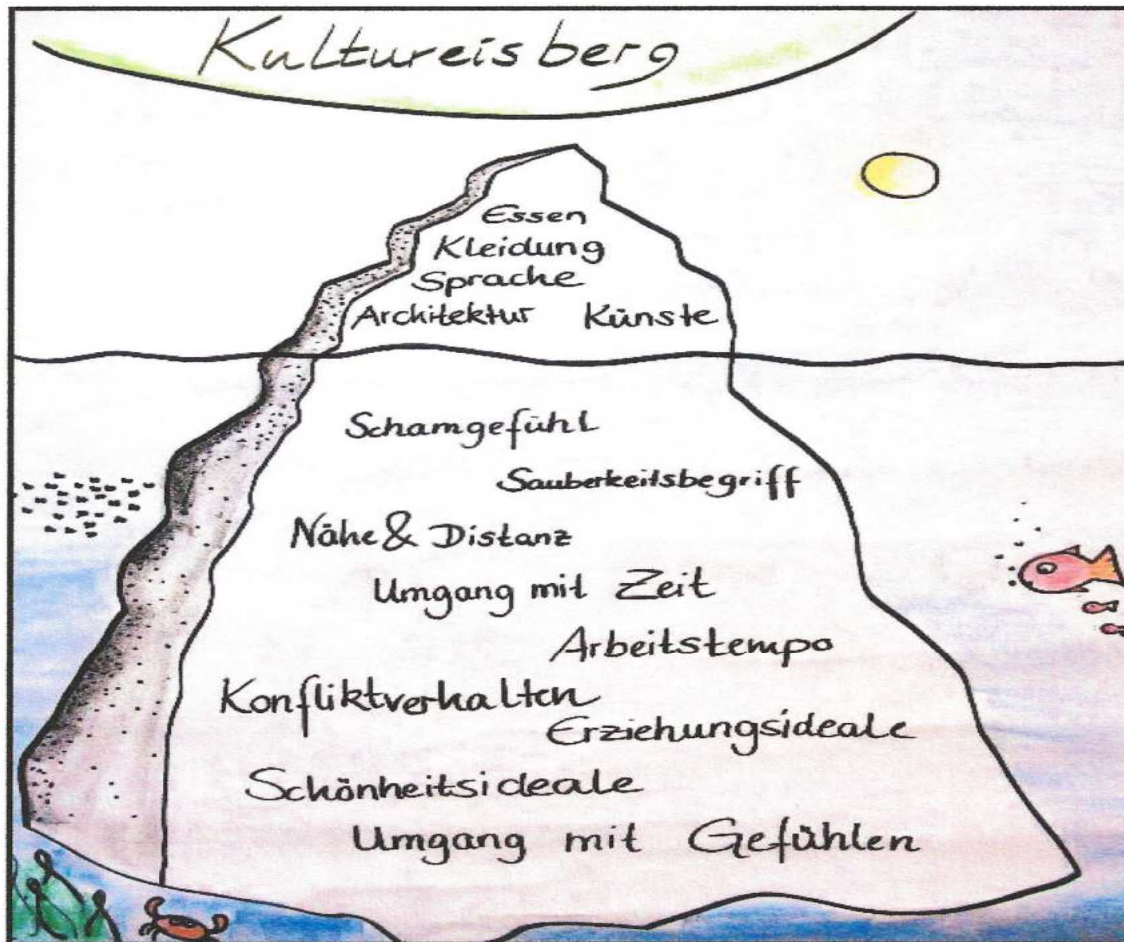 Kultureisberg
Essen
Kleidung
Sprache
Architektur Künste
Schamgefühl
Sauberkeitsbegriff
Nähe & Distanz
Umgang mit Zeit
Arbeitstempo
Konfliktverhalten
Erziehungsideale
Schönheitsideale
Umgang mit Gefühlen